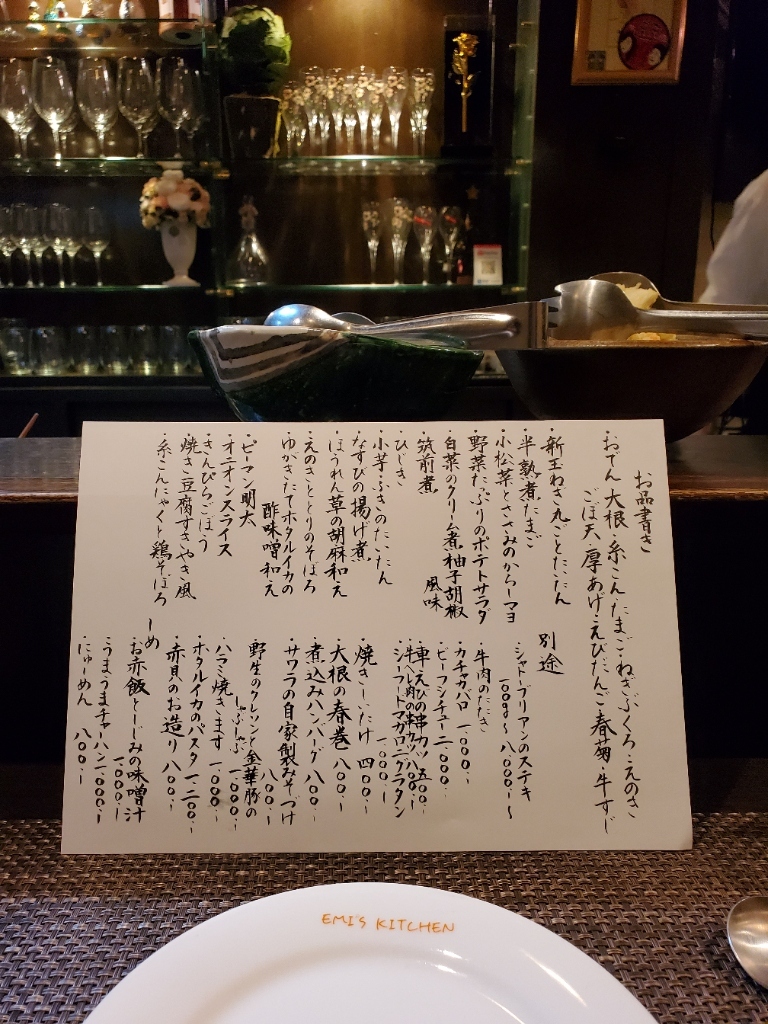 お品書き
・おでん 大根・糸こん・たまご・ねぎぶくろ・えのき
ごぼ天・厚あげ・えびだんご・春菊・牛すじ
・新玉ねぎ丸ごとたいたん
・半熟煮たまご
・小松菜とささみのからしマヨ
・野菜たっぷりのポテトサラダ
・白菜のクリーム煮柚子胡椒
風味
・筑前煮
・ひじき
・小芋・ふきのたいたん
・なすびの揚げ煮
・ほうれん草の胡麻和え
・えのきととりのそぼろ
・ゆがきたてホタルイカの
酢味噌和え
・ピーマン明太
・オニオンスライス
・きんぴらごぼう
・焼き豆腐すきやき風
・糸こんにゃくと鶏そぼろ
別途
・シャトーブリアンのステキ
100g〜8,000.-〜
・牛肉のたたき
・カチャガバロ 1,000.-
・ビーフシチュー 2,000.-
・車えびの串カツ 500.-
・牛ヘレ肉の串カツ 800.-
・シーフートマカロニグラタン
1,000.-
・焼きしいたけ 400.-
・大根の春巻 800.-
・煮込みハンバーグ 800.-
・サワラの自家製みそづけ
800.-
・野生のクレソンと金華豚の
しゃぶしゃぶ 1,000.-
・ハラミ焼きます 1,000.-
・ホタルイカのパスタ 1,200.-
・赤貝のお造り 800.-
〆
・お赤飯としじみの味噌汁
1,000.-
・うまうまチャーハン 1,000.-
・にゅーめん 800.-
EMI'S KITCHEN